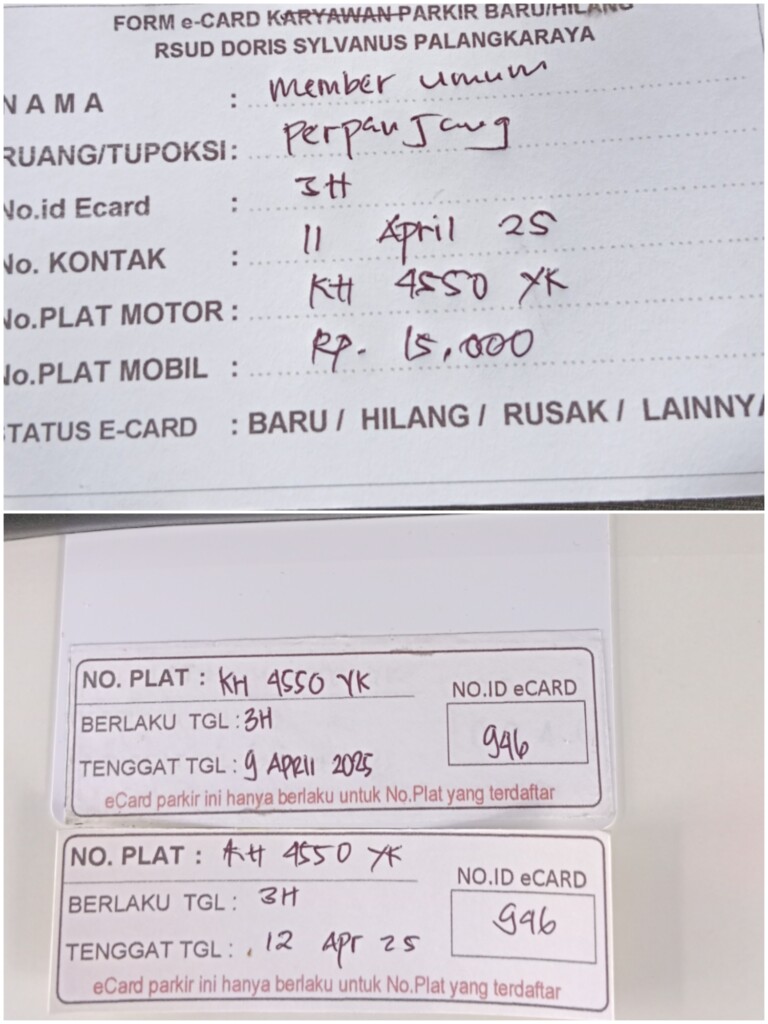 FORM e-CARD KARYAWAN PARKIR BARU/HILANG
RSUD DORIS SYLVANUS PALANGKARAYA
NAMA : member umum
RUANG/TUPOKSI : perpanjang
No.id Ecard : 3H
No. KONTAK : 11 April 25
No.PLAT MOTOR : KH 4550 YK
No.PLAT MOBIL : Rp. 15,000
STATUS E-CARD : BARU / HILANG / RUSAK / LAINNYA
NO. PLAT : KH 4550 YK
BERLAKU TGL : 3H
TENGGAT TGL : 9 APRIl 2025
NO.ID eCARD
946
eCard parkir ini hanya berlaku untuk No.Plat yang terdaftar
NO. PLAT : KH 4550 YK
BERLAKU TGL : 3H
TENGGAT TGL : 12 Apr 25
NO.ID eCARD
946
eCard parkir ini hanya berlaku untuk No.Plat yang terdaftar